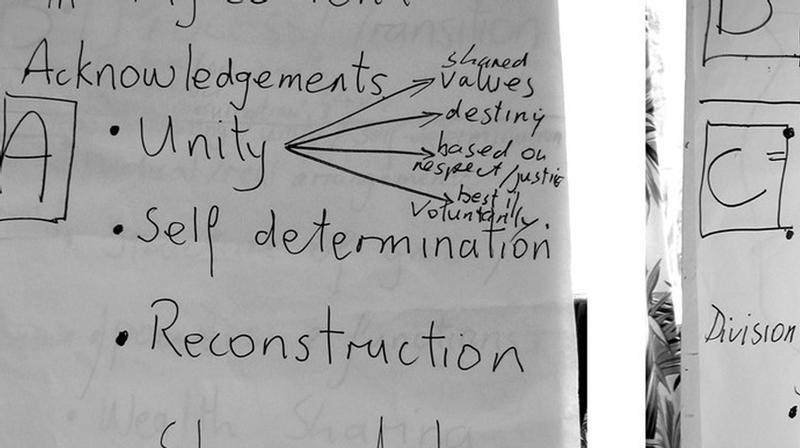 Acknowledgements
shared
values
A
• Unity
destiny
based on
respect/justice
best if
voluntarily.
• Self determination
• Reconstruction
Wealth Sharing
C
Division